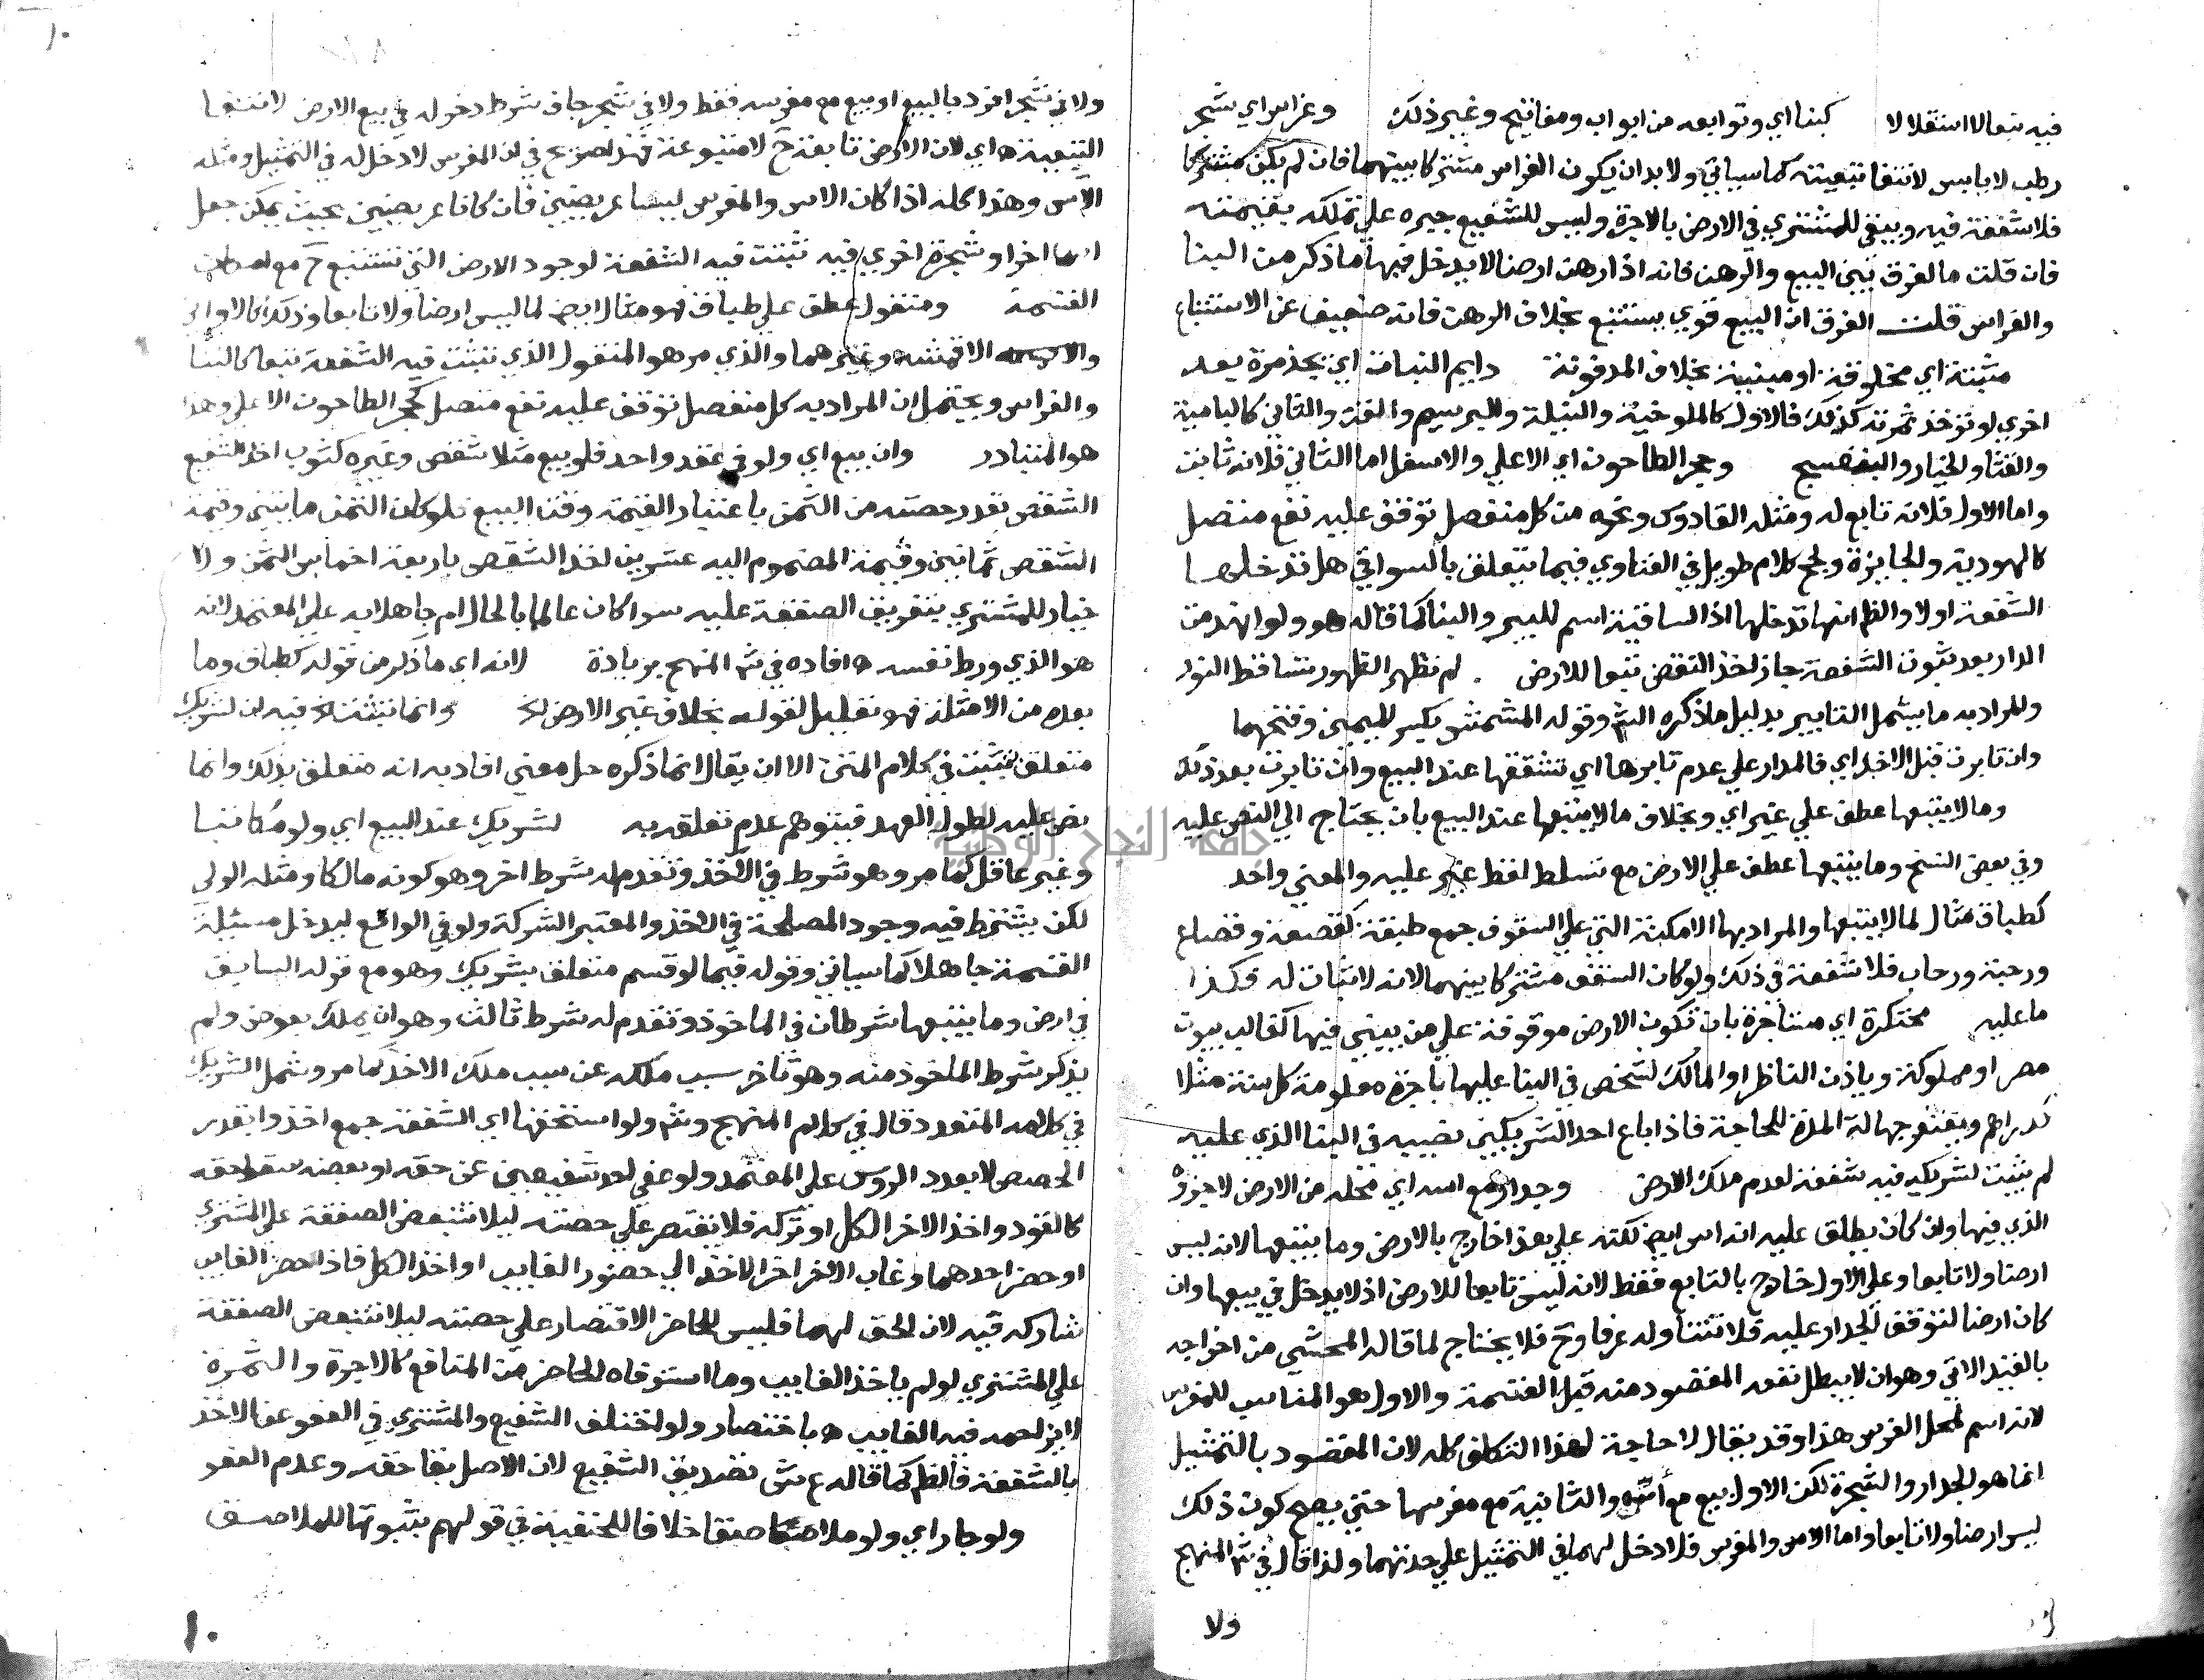 فيه تبعا لا استقلالا كبنا اي وتوابعه من ابواب ومفاتيح وغير ذلك وغراس اي شجر
رطب لا يابس لانتفا تبعيته كما سياتي ولا بد ان يكون الغراس مشتركا بينهما فان لم يكن مشتركا
فلا شفعة فيه ويبقي للمشتري في الارض بالاجرة وليس للشفيع جبره علي تملكه بقيمته
فان قلت ما الفرق بين البيع والرهن فانه اذا رهن ارضا لا يدخل فيها ما ذكر من البنا
والغراس قلت الفرق ان البيع قوي يستتبع بخلاف الرهن فانه ضعيف عن الاستتباع
مثبتة اي مخلوقة او مبنية بخلاف المدفونة دايم النبات اي يجذ مرة بعد
اخري لو تؤخذ ثمرته كذلك فالاول كالملوخية والنيلة والبرسيم والقت والثاني كالبامية
والقثا والخيار والبنفسج وحجر الطاحون اي الاعلي والاسفل اما الثاني فلانه ثابت
واما الاول فلانه تابع له ومثله القادوس ونحوه من كل منفصل توقف عليه نفع متصل
كالهودية والجابزة ولحج كلام طويل في الفتاوي فيما يتعلق بالسواقي هل تدخلها
الشفعة اولا والظ انها تدخلها اذ الساقية اسم للبير والبنا كما قاله هو ولو انهدمت
الدار بعد ثبوت الشفعة جاز اخذ النقض تبعا للارض . لم تظهر الظهور تساقط النور
والمراد به ما يشمل التابير بدليل ما ذكره الش وقوله المشمش بكسر الميمين وفتحهما
وان تابرت قبل الاخذ اي فالمدار علي عدم تابرها اي تشققها عند البيع وان تابرت بعد ذلك
وما لا يتبعها عطف علي غير اي وبخلاف ما لا يتبعها عند البيع بان يحتاج الي النص عليه
وفي بعض النسخ وما يتبعها عطف علي الارض مع تسلط لفظ غير عليه والمعني واحد
كطباق مثال لما لا يتبعها والمراد بها الامكنة التي علي السقوف جمع طبقة كقصعة وقصاع
ورحبة ورحاب فلا شفعة في ذلك ولو كان السقف مشتركا بينهما لانه لا ثبات له فكذا
ما عليه محتكرة اي مستاجرة بان تكون الارض موقوفة علي من يبني فيها كغالب بيوت
مصر او مملوكة وياذن الناظر او المالك لشخص في البنا عليها باجرة معلومة كل سنة مثلا
كدراهم ويغتفر جهالة المدة للحاجة فاذا باع احد الشريكين نصيبه في البنا الذي عليه
لم يثبت لشريكه فيه شفعة لعدم ملك الارض وجدار مع اسه اي محله من الارض لاجزوه
الذي فيها وان كان يطلق عليه انه اس ايض لكنه علي هذا خارج بالارض وما يتبعها لانه ليس
ارضا ولا تابعا وعلي الاول خارج بالتابع فقط لانه ليس تابعا للارض اذ لا يدخل في بيعها وان
كان ارضا لتوقف الجدار عليه فلا تتناوله عرفا وح فلا يحتاج لما قاله المحشي من اخراجه
بالقيد الاتي وهو ان لا يبطل نفعه المقصود منه قبل القسمة والاول هو المناسب للمغرس
لانه اسم لمحل الغرس هذا وقد يقال لا حاجة لهذا التكلف كله لان المقصود بالتمثيل
انما هو الجدار والشجرة لكن الاول بيع مع اسه والثانية مع مغرسها حتي يصح كون ذلك
ليس ارضا ولا تابعا واما الاس والمغرس فلا دخل لهما في التمثيل علي حدتهما ولذا قال في ش المنهج
ولا
ولا في شجر افرد بالبيع او بيع مع مغرسه فقط ولا في شجر جاف شرط دخوله في بيع الارض لانتفا
التبعية ه اي لان الارض تابعة ح لا متبوعة فهذا صريح في ان المغرس لا دخل له في التمثيل ومثله
الاس وهذا كله اذا كان الاس والمغرس ليسا عريضين فان كانا عريضين بحيث يمكن جعل
اسا اخر او شجرة اخري فيه ثبتت فيه الشفعة لوجود الارض التي تستتبع ح مع امكان
القسمة ومنقول عطف علي طباق فهو مثال ايض لما ليس ارضا ولا تابعا وذلك كالاواني
والاقمشة وغيرهما والذي مر هو المنقول الذي تثبت فيه الشفعة تبعا كالبنا
والغراس ويحتمل ان المراد به كل منفصل توقف عليه نفع متصل كحجر الطاحون الاعلي وهذا
هو المتبادر وان بيع اي ولو في عقد واحد فلو بيع مثلا شقص وغيره كثوب اخذ الشفيع
الشقص بقدر حصته من الثمن باعتبار القيمة وقت البيع فلو كان الثمن مايتين وقيمة
الشقص ثمانين وقيمة المضموم اليه عشرين اخذ الشقص باربعة اخماس الثمن ولا
خيار للمشتري بتفريق الصفقة عليه سوا كان عالما بالحال ام جاهلا به علي المعتمد لانه
هو الذي ورط نفسه ه افاده في ش المنهج بزيادة لانه اي ما ذكر من قوله كطباق وما
بعده من الامثلة فهو تعليل لقوله بخلاف غير الارض الخ وانما تثبت الخ فيه ان لشريك
متعلق بتثبت في كلام المتن الا ان يقال انما ذكره حل معني افاد به انه متعلق بذلك وانما
نص عليه لطول العهد فيتوهم عدم تعلقه به لشريك عند البيع اي ولو مكاتبا
وغير عاقل كما مر وهو شرط في الاخذ وتقدم له شرط اخر وهو كونه مالكا ومثله الولي
لكن يشترط فيه وجود المصلحة في الاخذ والمعتبر الشركة ولو في الواقع ليدخل مسئلة
القسمة جاهلا كما سياتي وقوله فيما لو قسم متعلق بشريك وهو مع قوله السابق
في ارض وما يتبعها شرطان في الماخوذ وتقدم له شرط ثالث وهو ان يملك بعوض ولم
يذكر شرط الماخوذ منه وهو تاخر سبب ملكه عن سبب ملك الاخذ كما مر وشمل الشريك
في كلامه المتعدد قال في كلام المنهج وش ولو استحقها اي الشفعة جمع اخذوا بقدر
الحصص لا بعدد الروس علي المعتمد ولو عفي احد شفيعين عن حقه او بعضه سقط حقه
كالقود واخذ الاخر الكل او تركه فلا يقتصر علي حصته ليلا تتبعض الصفقة علي المشتري
او حضر احدهما وغاب الاخر اخر الاخذ الي حضور الغايب او اخذ الكل فاذا حضر الغايب
شاركه فيه لان الحق لهما فليس للحاضر الاقتصار علي حصته ليلا تتبعض الصفقة
علي المشتري لو لم ياخذ الغايب وما استوفاه الحاضر من المنافع كالاجرة والثمرة
لا يزاحمه فيه الغايب ه باختصار ولو اختلف الشفيع والمشتري في العفو عن الاخذ
بالشفعة فالظ كما قاله ع ش تصديق الشفيع لان الاصل بقا حقه وعدم العفو
ولو جار اي ولو ملاصقا خلافا للحنفية في قولهم بثبوتها للملاصق
١٠
جامعة النجاح الوطنية